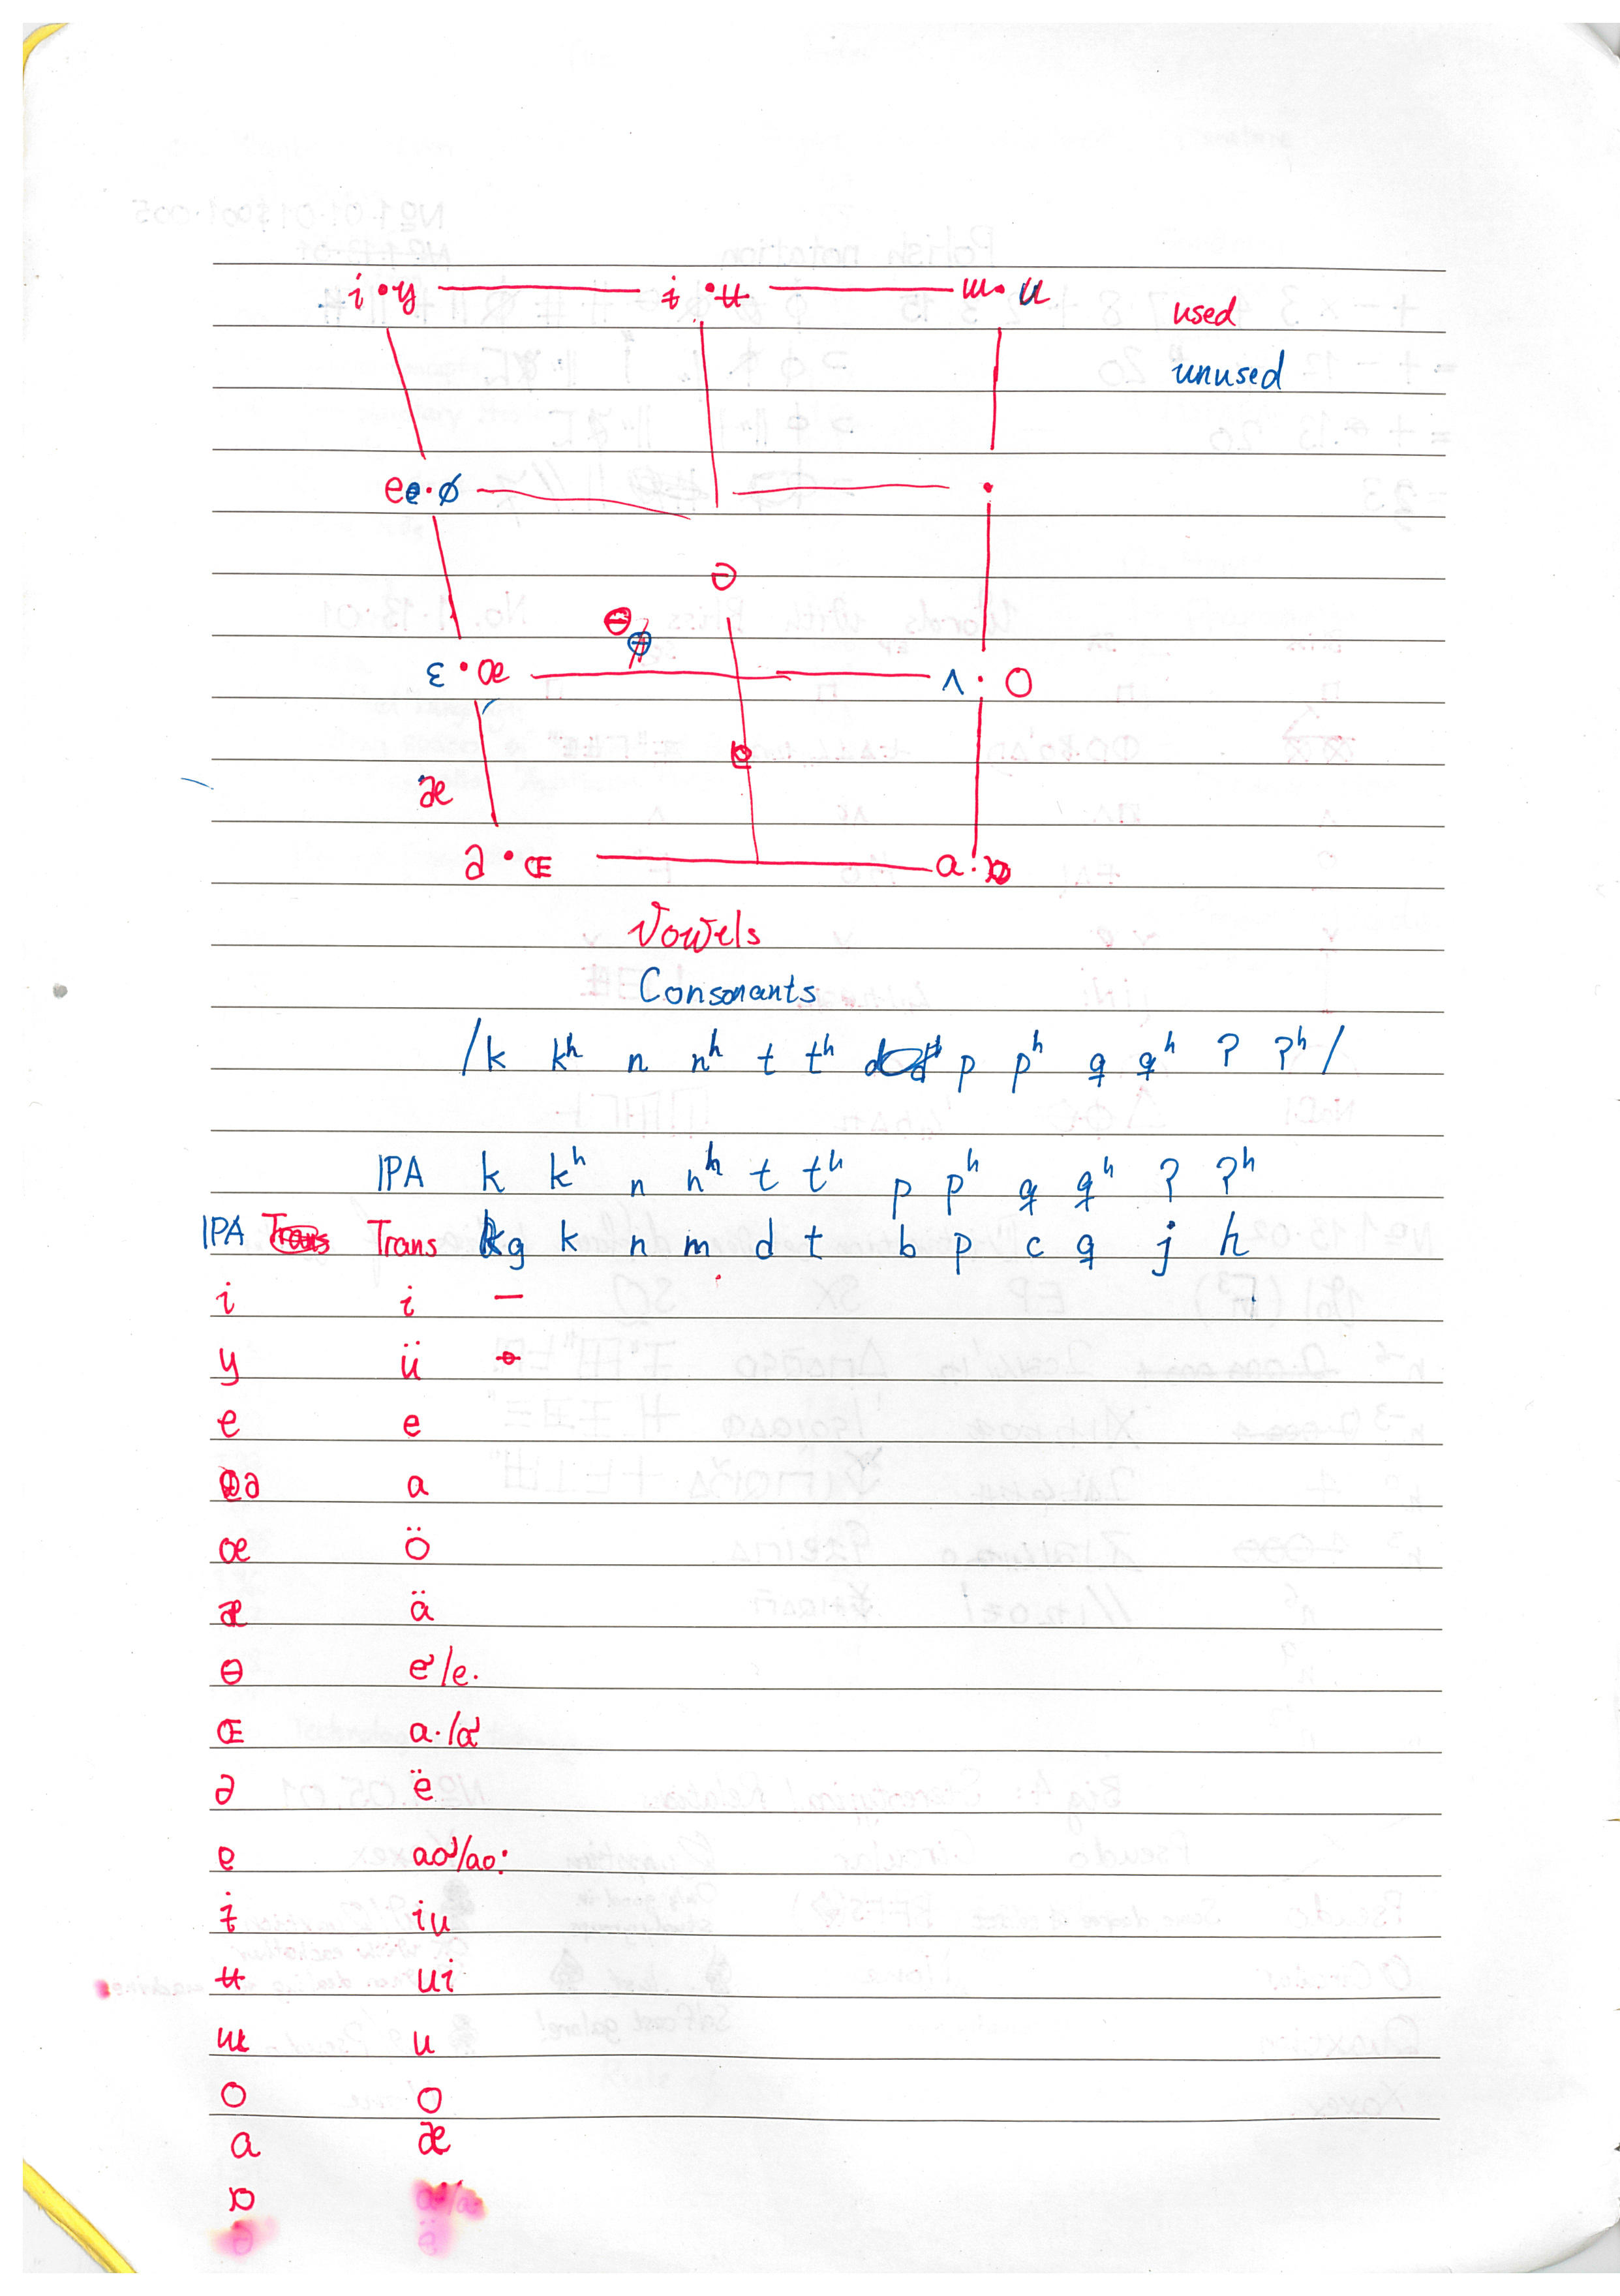 i • y ɨ • ʉ ɯ • u used
unused
e • ø
ə
ɘ
ɛ • œ ʌ . o
æ
a • ɶ ɑ . ɒ
Vowels
Consonants
/k kʰ n nʰ t tʰ p pʰ q qʰ ʔ ʔʰ /
IPA k kʰ n nʰ t tʰ p pʰ q qʰ ʔ ʔʰ
IPA Trans g k n m d t b p c q j h
i i –
y ü
e e
a a
œ ö
æ ä
ɵ /e.
ɶ a./
ə ë
/ao.
ɨ iu
ʉ ui
ɯ u
o o
ɑ æ
ɒ
ë